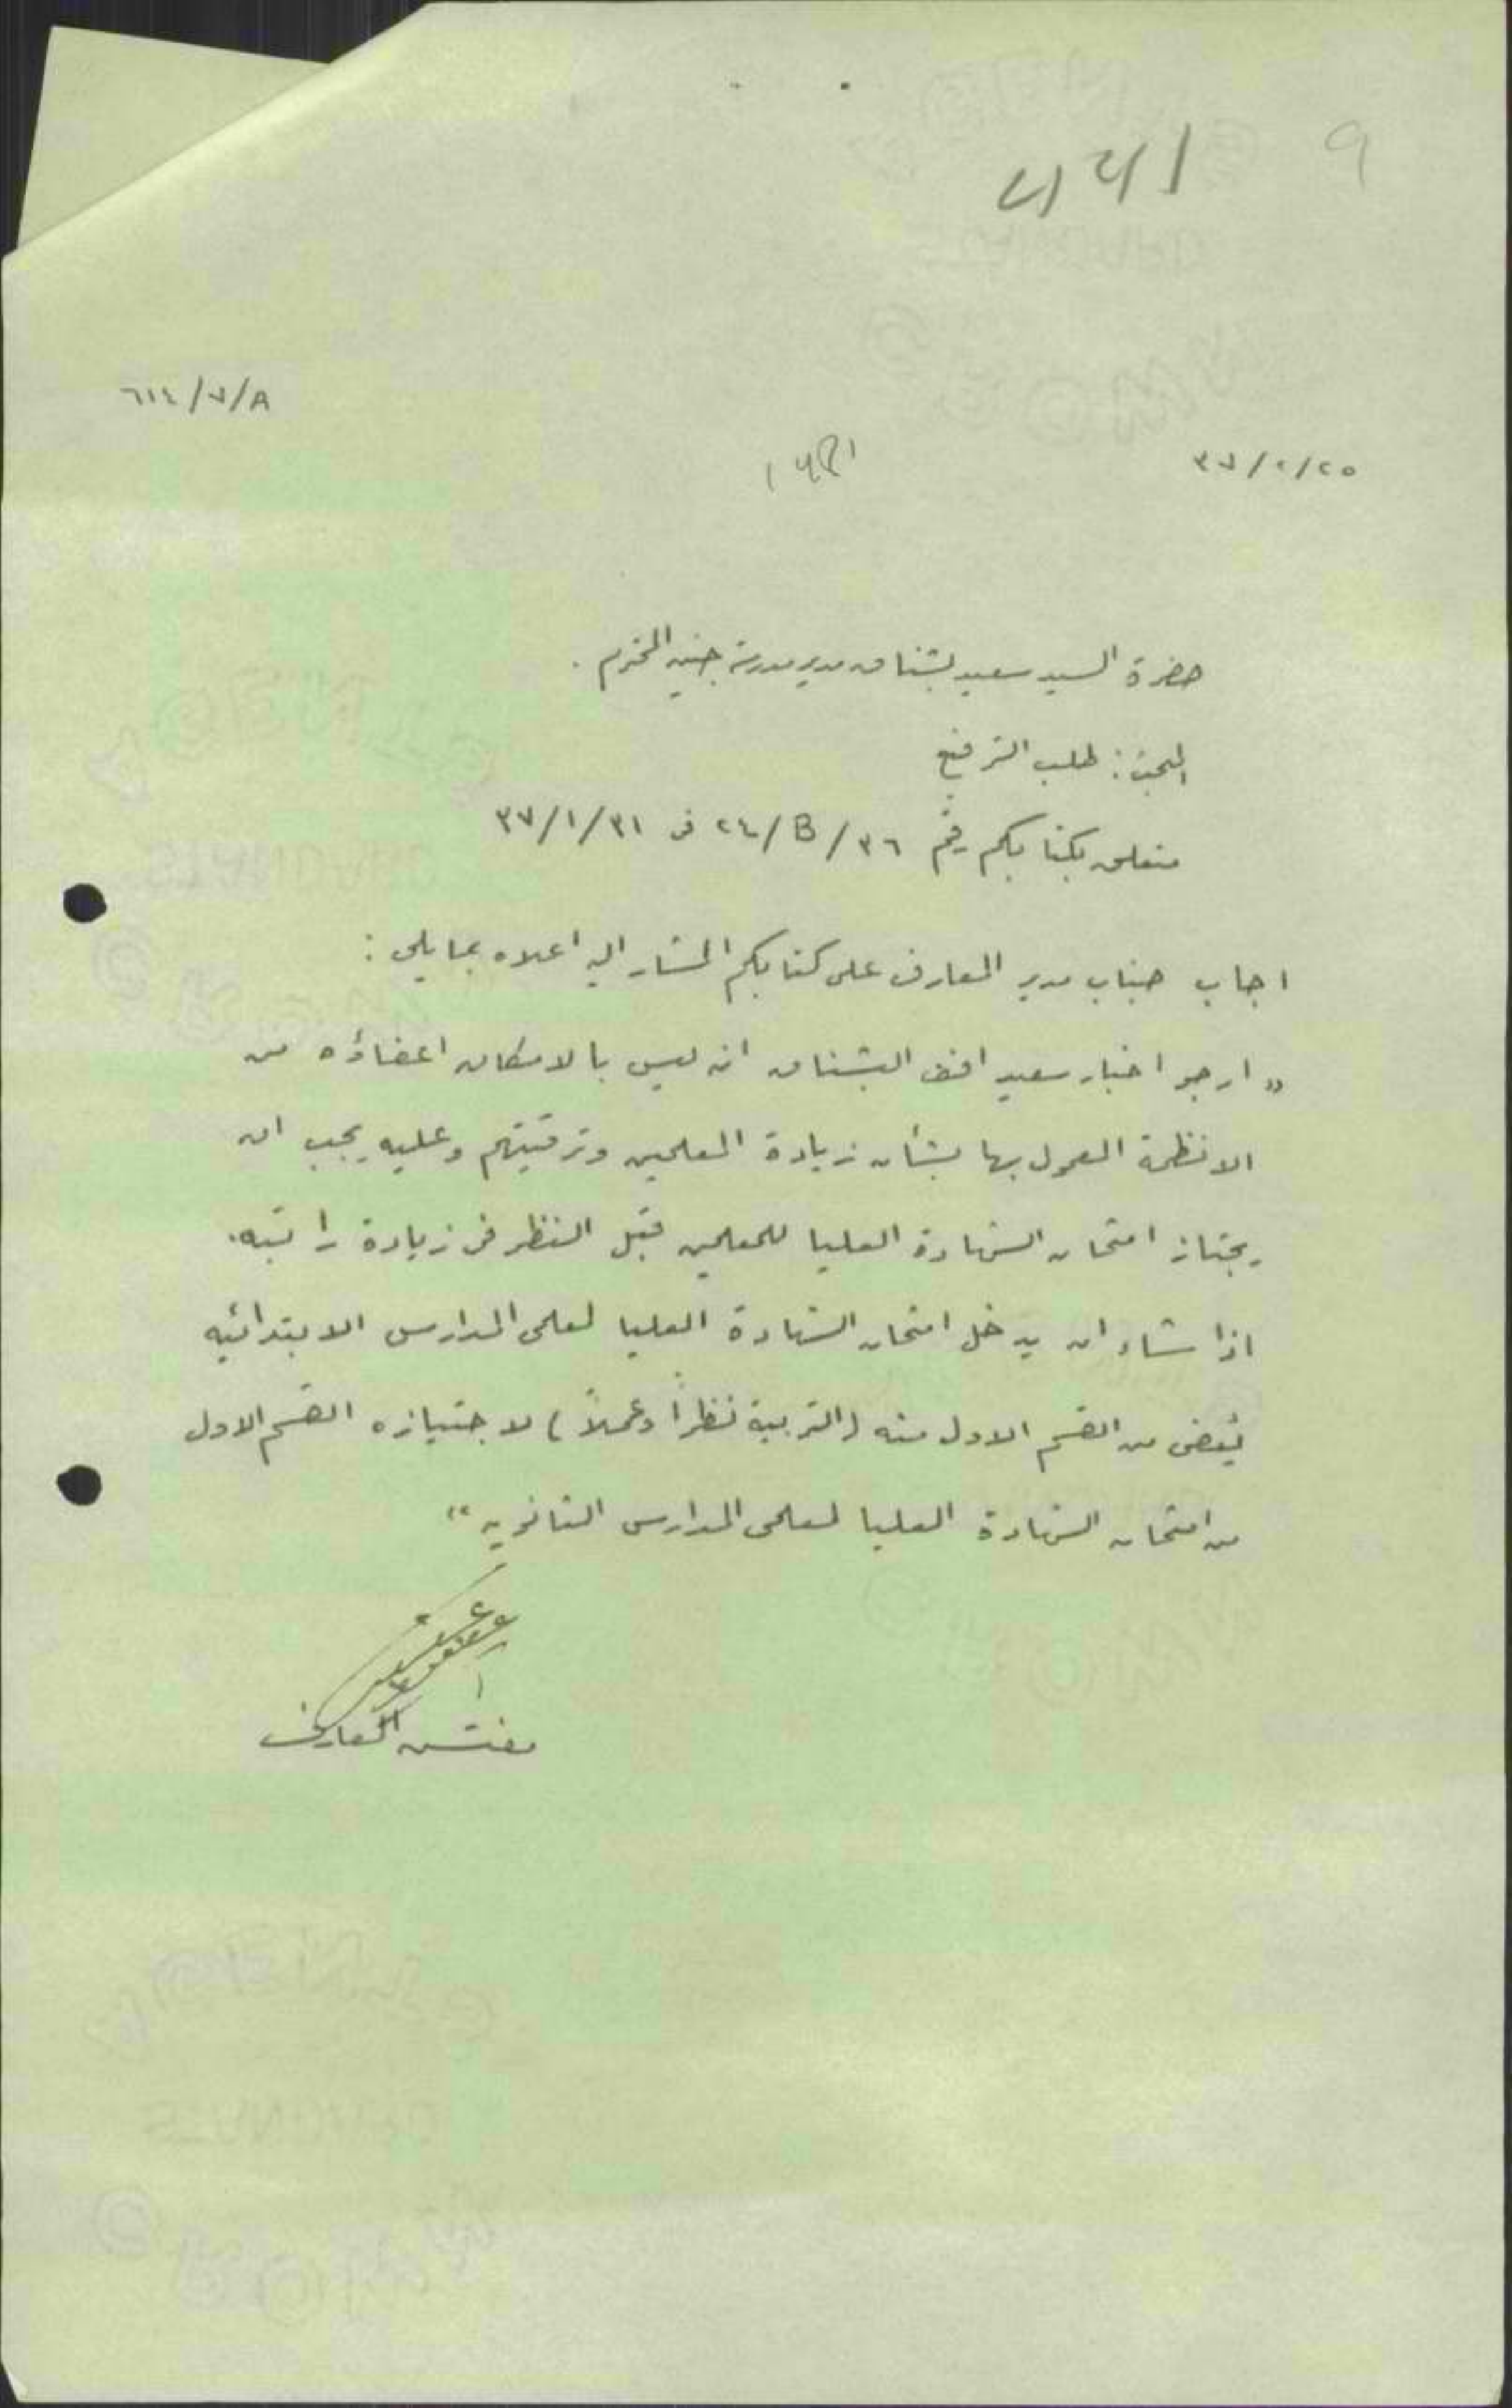 ٩
٦١٤/٧/A
٣٧/٢/٢٥
حضرة السيد سعيد بشناق مدير مدرسة جنين المحترم .
البحث : طلب الترفيع
متعلق بكتابكم رقم ٣٦/B/٢٤ في ٣٧/١/٣١
اجاب جناب مدير المعارف على كتابكم المشار اليه اعلاه بما يلي :
" ارجو اخبار سعيد افندي البشناق انه ليس بالامكان اعفاؤه من
الانظمة المعمول بها بشأن زيادة المعلمين وترقيتهم وعليه يجب ان
يجتاز امتحان الشهادة العليا للمعلمين قبل النظر في زيادة راتبه .
اذا شاء ان يدخل امتحان الشهادة العليا لمعلمي المدارس الابتدائيه
يُعفى من القسم الاول منه (التربية نظراً وعملاً) لاجتيازه القسم الاول
من امتحان الشهادة العليا لمعلمي المدارس الثانويه "
مفتش المعارف